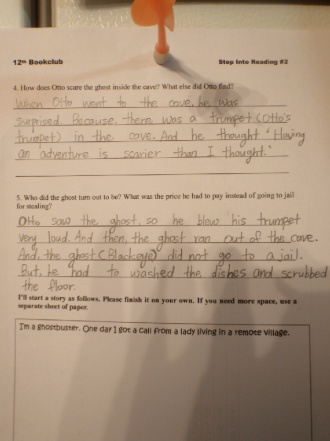 12th Bookclub
Step Into Reading #2
4. How does Otto scare the ghost inside the cave? What else did Otto find?
When Otto went to the cave, he was
surprised Because, there was a trumpet (Otto's
trumpet) in the cave. And he thought "Having
an adventure is scarier than I thought."
5. Who did the ghost turn out to be? What was the price he had to pay instead of going to jail
for stealing?
Otto saw the ghost, so he blew his trumpet
very loud. And then, the ghost ran out of the cave.
And, the ghost (Blackeye) did not go to a jail.
But, he had to washed the dishes and scrubbed
the floor.
I'll start a story as follows. Please finish it on your own. If you need more space, use a
separate sheet of paper.
I'm a ghostbuster. One day I got a call from a lady living in a remote village.